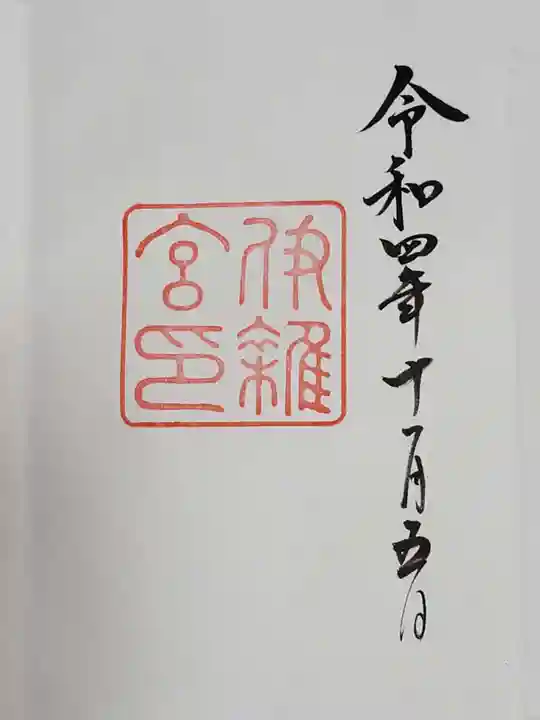 令和四年十一月五日
伊雜
宮印